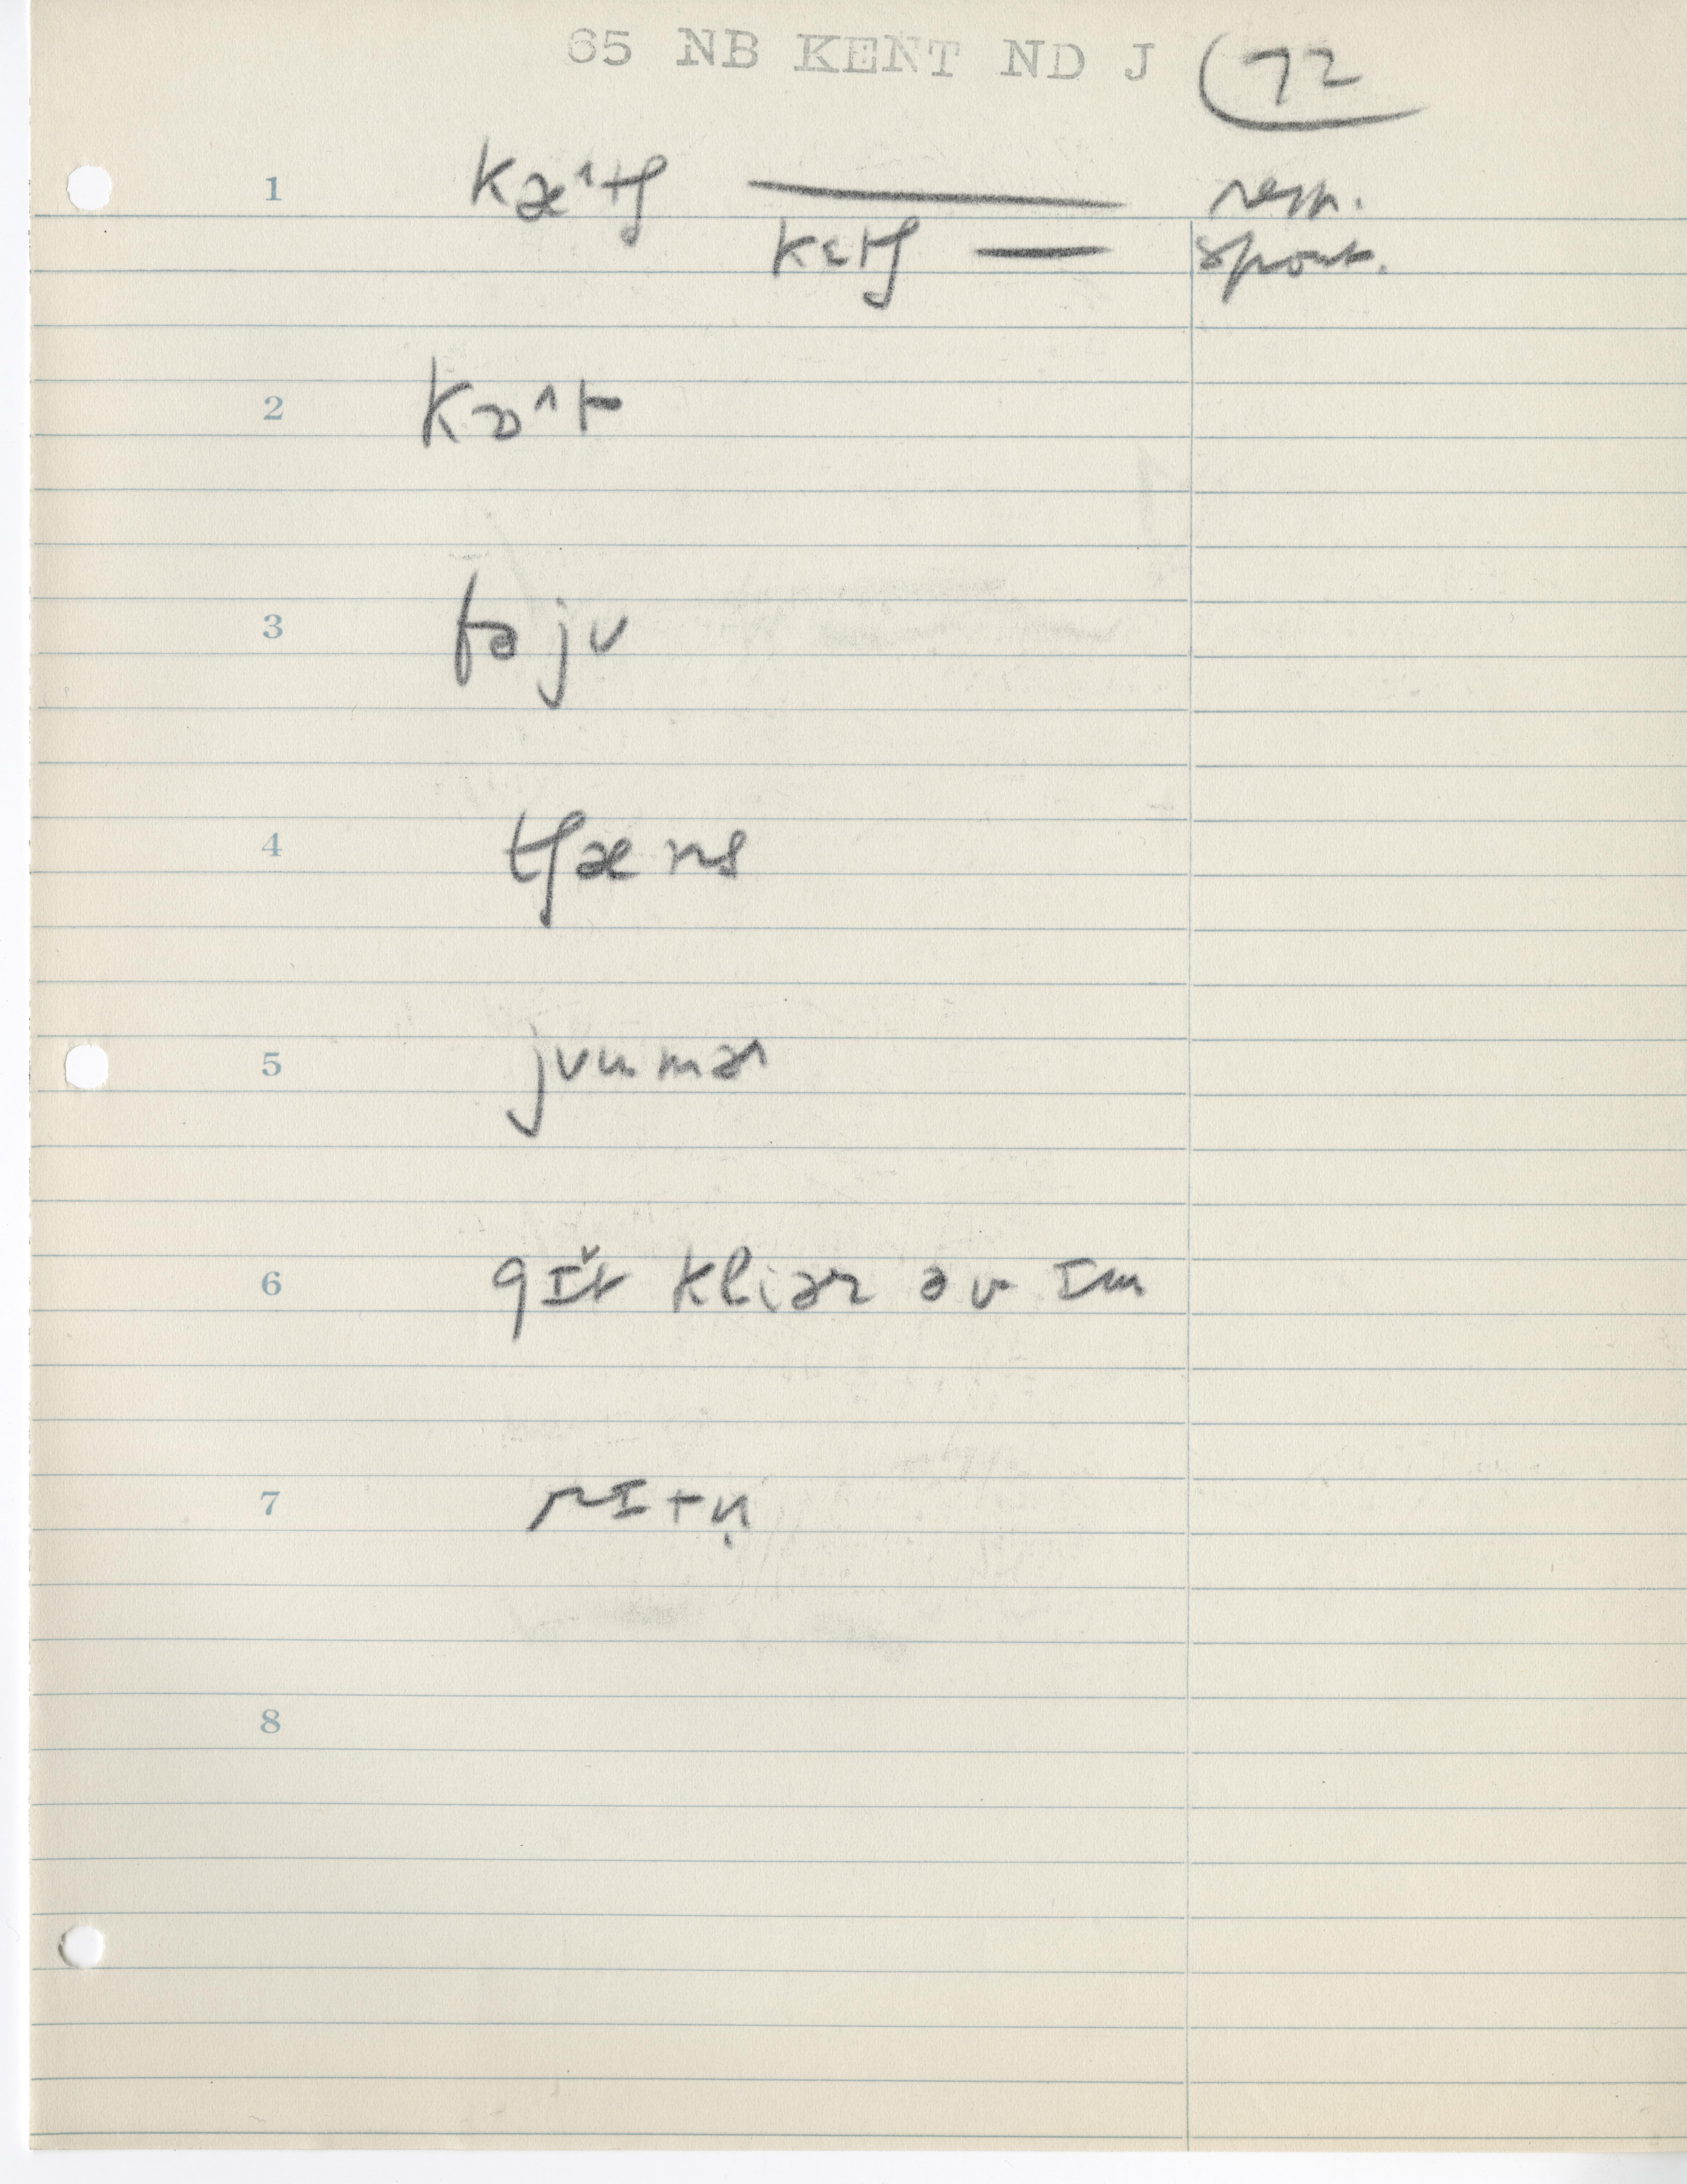 65 NB KENT ND J 72
1 kæ^tʃ —— resp.
kɛtʃ — spont.
2 kɒ^t
3 fɚ ju
4 tʃæns
5 jumɚ
6 gɪ̌t kliɚ əv ɪm
7 rɪtn̩
8